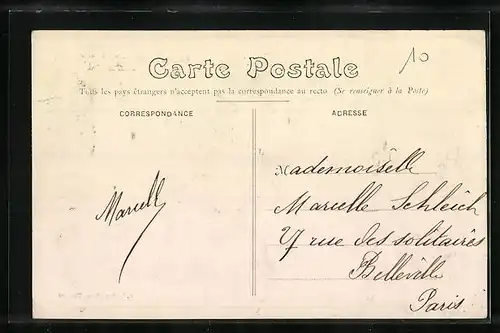 10
Carte Postale
Tous les pays étrangers n'acceptent pas la correspondance au recto (Se renseigner à la Poste)
CORRESPONDANCE
ADRESSE
Marcelle
Mademoiselle
Marcelle Schleich
rue des solitaires
Belleville
Paris.